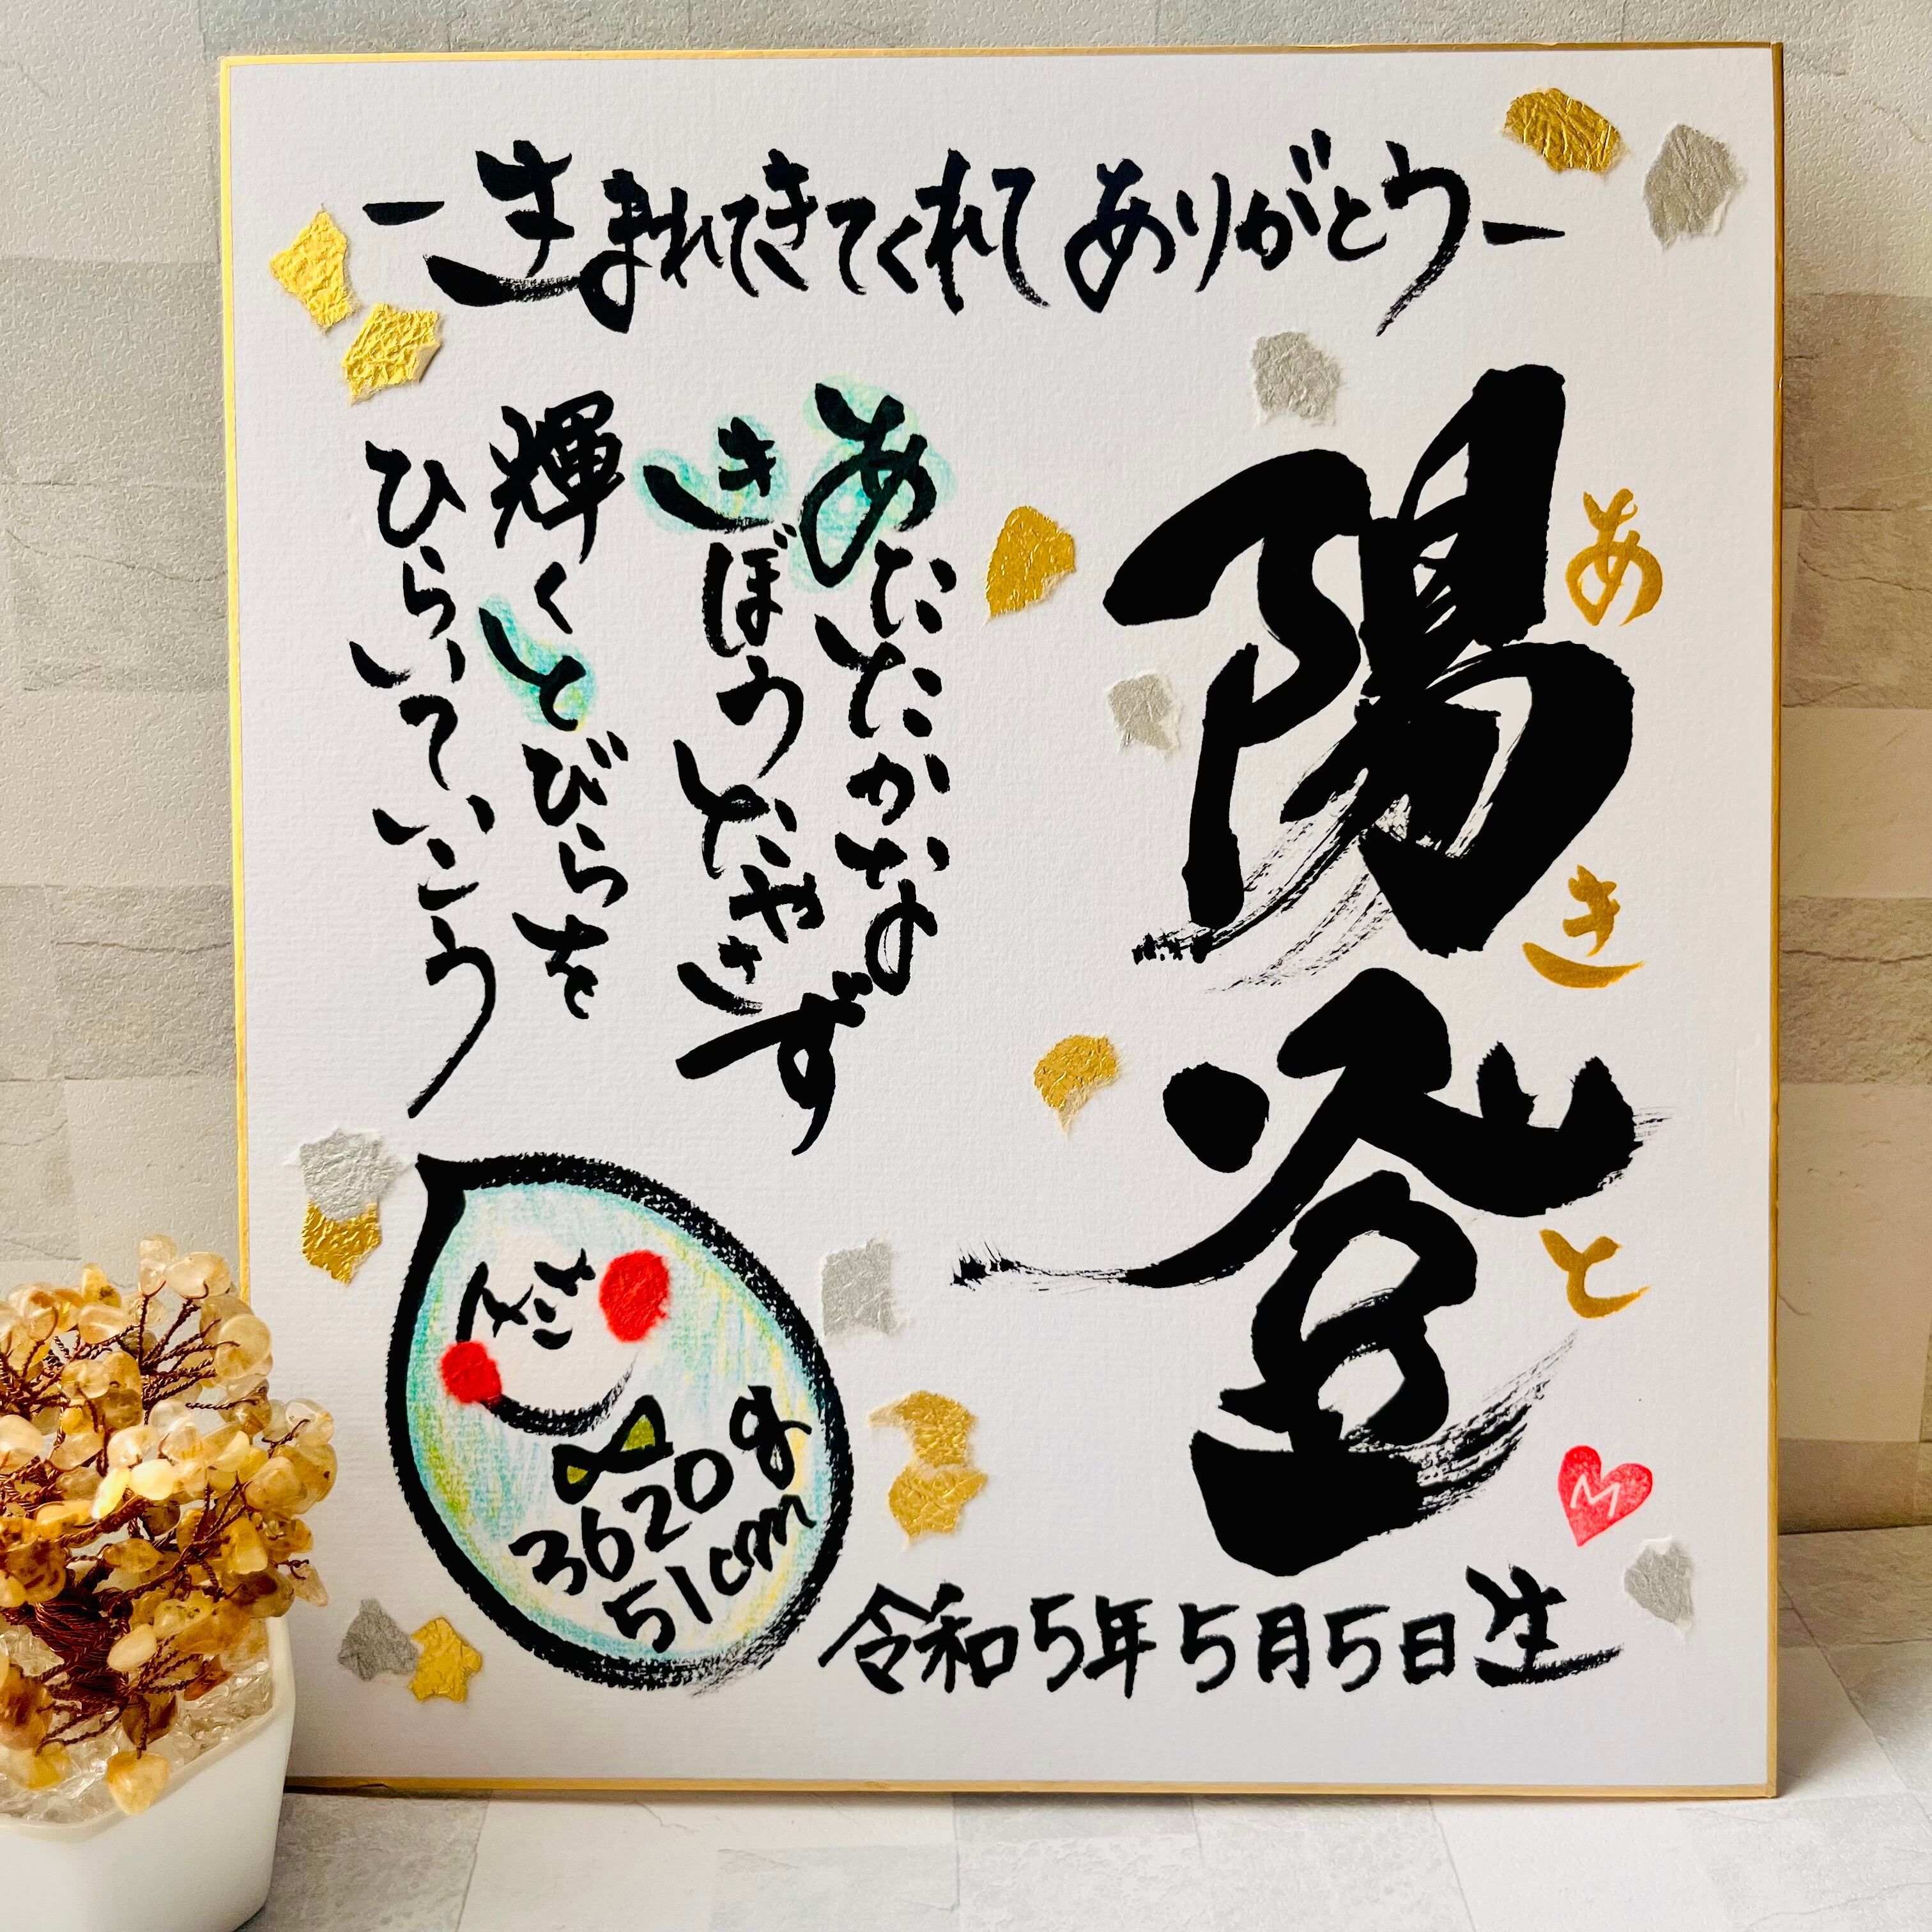 ー生まれてきてくれて ありがとうー
陽登
あきと
あたたかな
きぼうたやさず
輝くとびらを
ひらいていこう
3620g
51cm
令和5年5月5日生
M